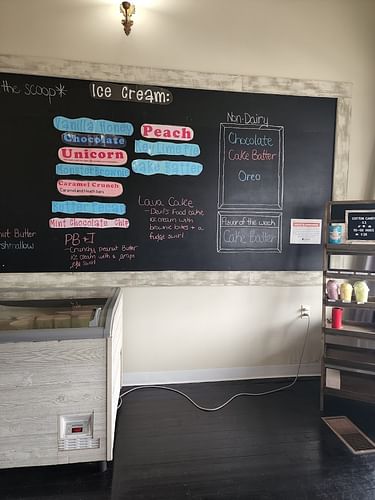 the scoop*
Ice Cream:
Vanilla Honey
Chocolate
Unicorn
Monster Brownie
Caramel Crunch
Caramel and Heath bars
Butter Pecan
Mint Chocolate Chip
Peach
Key Lime Pie
Cake Batter
PB + J
- Crunchy peanut Butter
ice cream with a grape
swirl
Lava Cake
- Devil's Food cake
ice cream with
brownie bites + a
fudge swirl
Non-Dairy
Chocolate
Cake Batter
Oreo
Flavor of the week
Cake Batter
nut Butter
rshmallow
COTTON CANDY